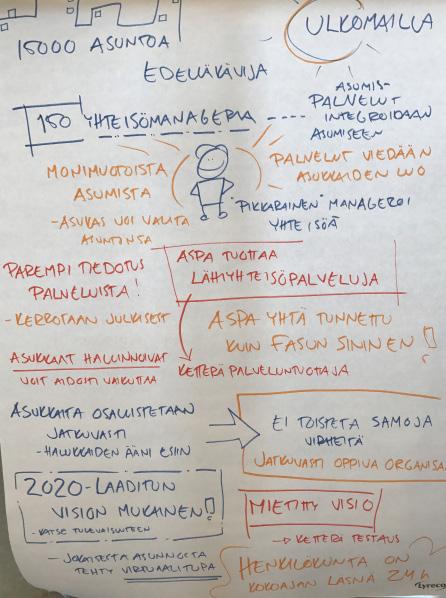 15000 ASUNTOA
ULKOMAILLA
EDELLÄKÄVIJÄ
150 YHTEISÖMANAGERIA
ASUMIS-
PALVELUT
INTEGROIDAAN
ASUMISEEN
MONIMUOTOISTA
ASUMISTA
- ASUKAS VOI VALITA
ASUNTONSA
PALVELUT VIEDÄÄN
ASUKKAIDEN LUO
"PIKKARAINEN" MANAGEROI
YHTEISÖÄ
PAREMPI TIEDOTUS
PALVELUISTA!
- KERROTAAN JULKISESTI
ASPA TUOTTAA
LÄHIYHTEISÖPALVELUJA
ASPA YHTÄ TUNNETTU
KUIN FASUN SININEN!
ASUKKAAT HALLINNOIVAT
VOIT AIDOSTI VAIKUTTAA
KETTERÄ PALVELUNTUOTTAJA
ASUKKAITA OSALLISTETAAN
JATKUVASTI
- HALUKKAIDEN ÄÄNI ESIIN
EI TOISTETA SAMOJA
VIRHEITÄ
JATKUVASTI OPPIVA ORGANISA
2020-LAADITUN
VISION MUKAINEN!
- KATSE TULEVAISUUTEEN
MIETITTY VISIO
→ KETTERÄ TESTAUS
- JOKAISESTA ASUNNOSTA
TEHTY VIRTUAALITUPA
HENKILÖKUNTA ON
KOKOAJAN LÄSNÄ 24h
Lyreco